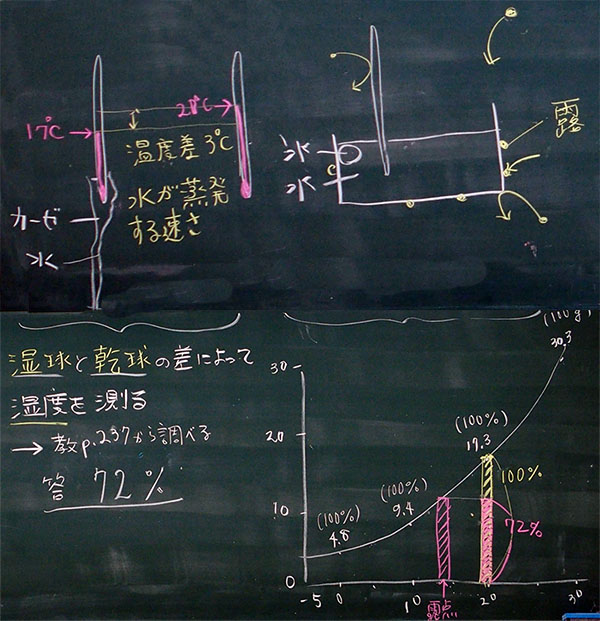 17℃
20℃
温度差3℃
水が蒸発
する速さ
ガーゼ
水
氷
水
露
湿球と乾球の差によって
湿度を測る
→ 教p.237から調べる
答 72%
30
20
10
0
-5 0 10 20 30
(100%)
4.8
(100%)
9.4
(100%)
17.3
30.3
100%
72%
露点